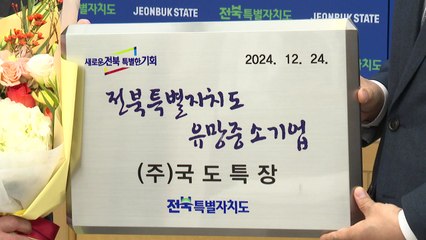 JEONBUK STATE
JEONBUK STATE
전북특별자치도
새로운 전북 특별한 기회
2024. 12. 24.
전북특별자치도
유망중소기업
(주)국도특장
전북특별자치도